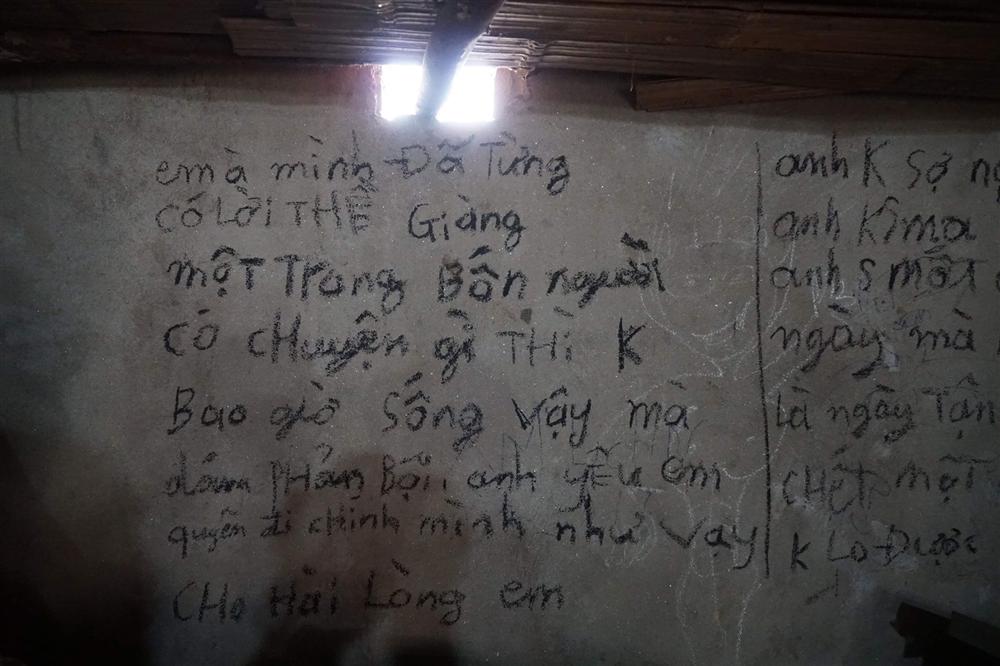 em à mình Đã Từng
có Lời THỀ Giàng
một Trong Bốn người
có cHuyện gì THì K
Bao giờ Sống Vậy mà
dám PHản Bội, anh yêu em
quyên đi cHinh mình như vạy
CHo Hài Lòng em
anh K Sợ
anh K
anh S mất
ngày mà
là ngày Tận
CHết một
K Lo Được